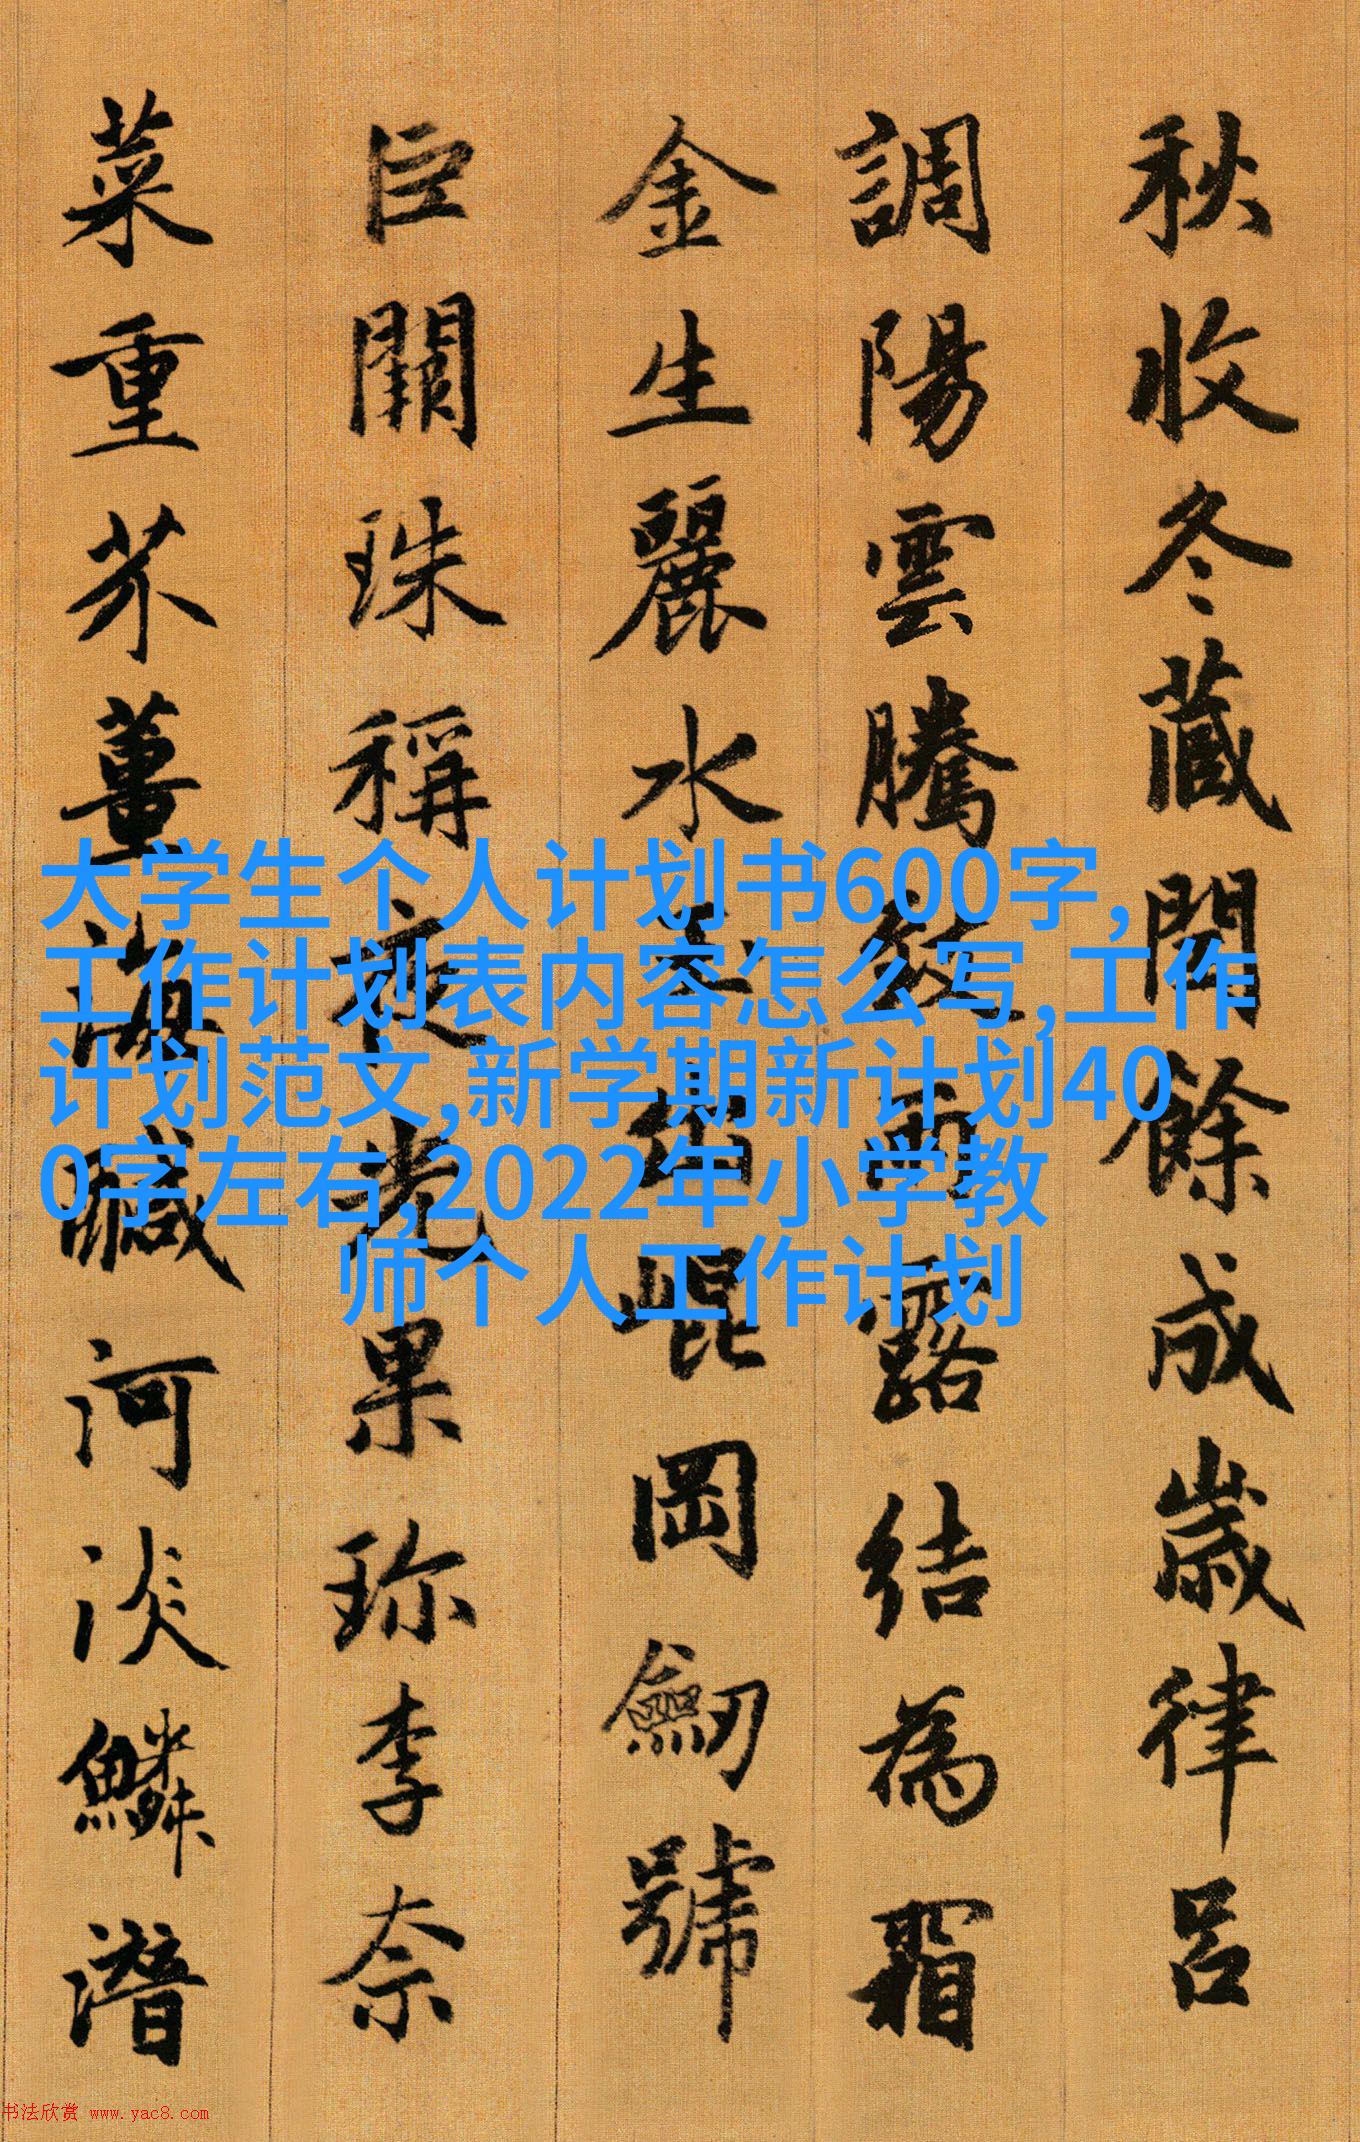 秋收冬藏閏餘成歲律呂
調陽雲騰致雨露結為霜
金生麗水玉出崐岡劒號
巨闕珠稱夜光果珎李奈
菜重芥薑海鹹河淡鱗潛
大学生个人计划书600字,
工作计划表内容怎么写,工作
计划范文,新学期新计划40
0字左右,2022年小学教
师个人工作计划
书法欣赏 www.yac8.com